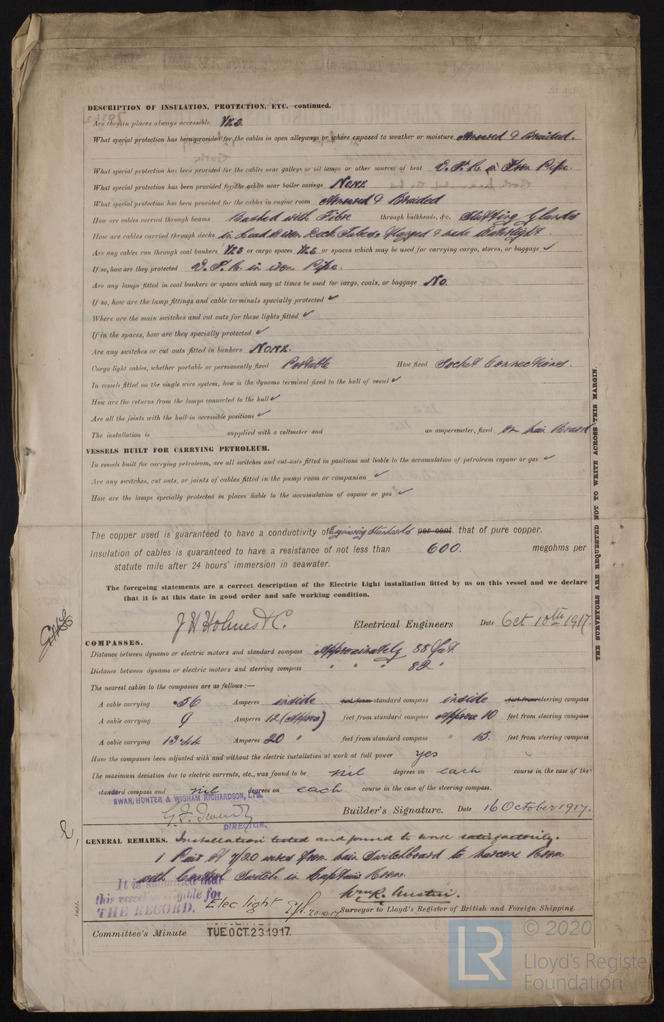 DESCRIPTION OF INSULATION, PROTECTION, ETC. continued.
Are they in places always accessible Yes
What special protection has been provided for the cables in open alleyways or where exposed to weather or moisture Armored & Braided.
What special protection has been provided for the cables near galleys or oil lamps or other sources of heat in Iron Pipe
What special protection has been provided for the cables near boiler casings None
What special protection has been provided for the cables in engine room Armored & Braided
How are cables carried through beams Bushed with Fibre through bulkheads, &c. Stuffing Glands
How are cables carried through decks in Deck Tubes Flanged & made Watertight.
Are any cables run through coal bunkers Yes or cargo spaces Yes or spaces which may be used for carrying cargo, stores, or baggage ✓
If so, how are they protected in iron Pipe.
Are any lamps fitted in coal bunkers or spaces which may at times be used for cargo, coals, or baggage No.
If so, how are the lamp fittings and cable terminals specially protected ✓
Where are the main switches and cut outs for these lights fitted ✓
If in the spaces, how are they specially protected ✓
Are any switches or cut outs fitted in bunkers None.
Cargo light cables, whether portable or permanently fixed Portable How fixed Socket Connections.
In vessels fitted on the single wire system, how is the dynamo terminal fixed to the hull of vessel ✓
How are the returns from the lamps connected to the hull ✓
Are all the joints with the hull in accessible positions ✓
The installation is supplied with a voltmeter and an amperemeter, fixed on Main Board
VESSELS BUILT FOR CARRYING PETROLEUM.
In vessels built for carrying petroleum, are all switches and cut-outs fitted in positions not liable to the accumulation of petroleum vapour or gas ✓
Are any switches, cut outs, or joints of cables fitted in the pump room or companion ✓
How are the lamps specially protected in places liable to the accumulation of vapour or gas ✓
The copper used is guaranteed to have a conductivity of Engineering Standards per cent. that of pure copper.
Insulation of cables is guaranteed to have a resistance of not less than 600. megohms per
statute mile after 24 hours' immersion in seawater.
The foregoing statements are a correct description of the Electric Light installation fitted by us on this vessel and we declare
that it is at this date in good order and safe working condition.
J H Holmes & Co. Electrical Engineers Date Oct 10th 1917.
COMPASSES.
Distance between dynamo or electric motors and standard compass Approximately 88 feet
Distance between dynamo or electric motors and steering compass " " 82 "
The nearest cables to the compasses are as follows:—
A cable carrying .56 Amperes inside feet from standard compass inside feet from steering compass
A cable carrying 9 Amperes 12 (Approx) feet from standard compass Approx 10 feet from steering compass
A cable carrying 13.44 Amperes 20 " feet from standard compass " 15. feet from steering compass
Have the compasses been adjusted with and without the electric installation at work at full power yes
The maximum deviation due to electric currents, etc., was found to be nil degrees on each course in the case of the
standard compass and nil degrees on each course in the case of the steering compass.
SWAN, HUNTER & WIGHAM RICHARDSON, LTD.
DIRECTOR.
Builder's Signature. Date 16 October 1917.
GENERAL REMARKS. Installation tested and found to work satisfactorily.
1 Pair of 7/20 wires from main Switchboard to Marconi Room
with Control Switch in Captains Room.
It is submitted that
this vessel is eligible for
THE RECORD. Elec light 20.10.17
Wm R. Austin.
Surveyor to Lloyd's Register of British and Foreign Shipping.
Committee's Minute TUE OCT. 23 1917.
THE SURVEYORS ARE REQUESTED NOT TO WRITE ACROSS THIS MARGIN.
© 2020
LR
Lloyd's Register
Foundation